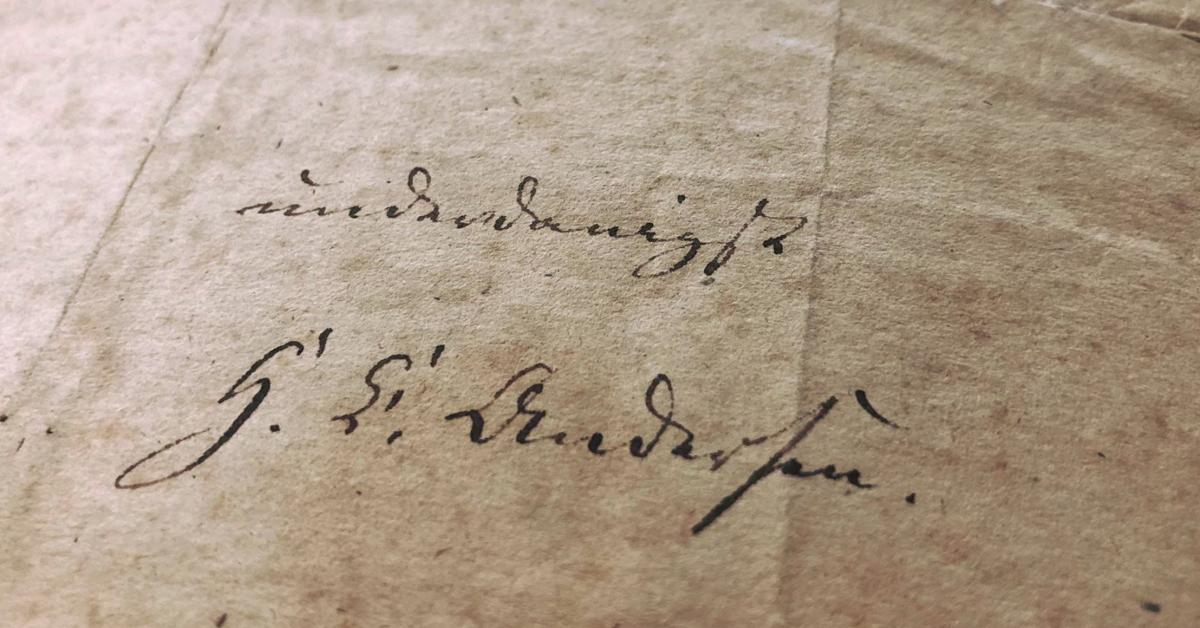 underdanigst
H. C. Andersen.